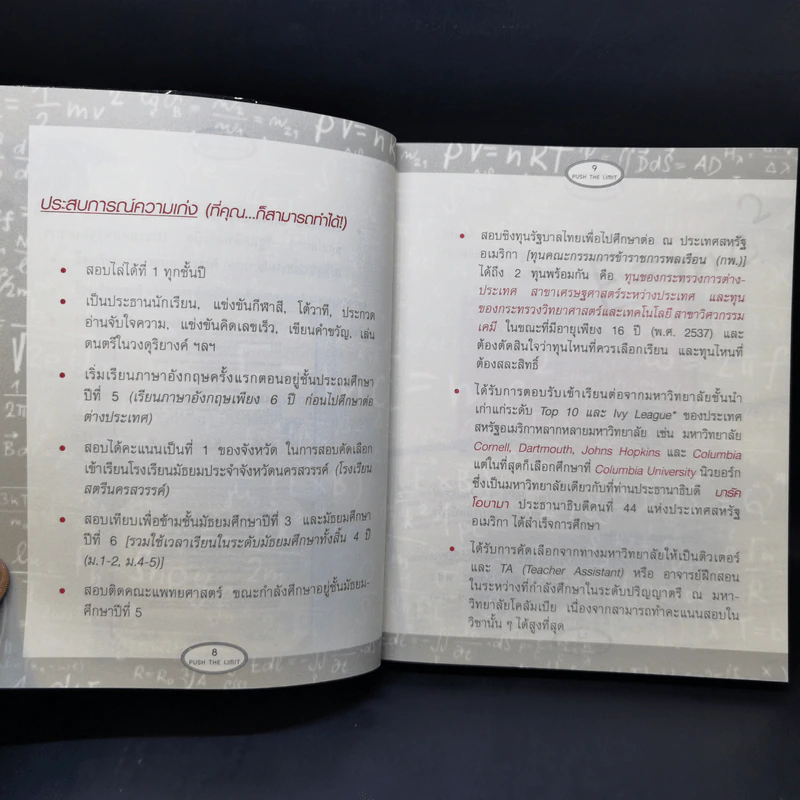 ประสบการณ์ความเก่ง (ที่คุณ...ก็สามารถทำได้!)
• สอบไล่ได้ที่ 1 ทุกชั้นปี
• เป็นประธานนักเรียน, แข่งขันกีฬาสี, โต้วาที, ประกวด
อ่านจับใจความ, แข่งขันคิดเลขเร็ว, เขียนคำขวัญ, เล่น
ดนตรีในวงดุริยางค์ ฯลฯ
• เริ่มเรียนภาษาอังกฤษครั้งแรกตอนอยู่ชั้นประถมศึกษา
ปีที่ 5 (เรียนภาษาอังกฤษเพียง 6 ปี ก่อนไปศึกษาต่อ
ต่างประเทศ)
• สอบได้คะแนนเป็นที่ 1 ของจังหวัด ในการสอบคัดเลือก
เข้าเรียนโรงเรียนมัธยมประจำจังหวัดนครสวรรค์ (โรงเรียน
สตรีนครสวรรค์)
• สอบเทียบเพื่อข้ามชั้นมัธยมศึกษาปีที่ 3 และมัธยมศึกษา
ปีที่ 6 [รวมใช้เวลาเรียนในระดับมัธยมศึกษาทั้งสิ้น 4 ปี
(ม.1-2, ม.4-5)]
• สอบติดคณะแพทยศาสตร์ ขณะกำลังศึกษาอยู่ชั้นมัธยม-
ศึกษาปีที่ 5
8
PUSH THE LIMIT
9
PUSH THE LIMIT
• สอบชิงทุนรัฐบาลไทยเพื่อไปศึกษาต่อ ณ ประเทศสหรัฐ
อเมริกา [ทุนคณะกรรมการข้าราชการพลเรือน (กพ.)]
ได้ถึง 2 ทุนพร้อมกัน คือ ทุนของกระทรวงการต่าง-
ประเทศ สาขาเศรษฐศาสตร์ระหว่างประเทศ และทุน
ของกระทรวงวิทยาศาสตร์และเทคโนโลยี สาขาวิศวกรรม
เคมี ในขณะที่มีอายุเพียง 16 ปี (พ.ศ. 2537) และ
ต้องตัดสินใจว่าทุนไหนที่ควรเลือกเรียน และทุนไหนที่
ต้องสละสิทธิ์
• ได้รับการตอบรับเข้าเรียนต่อจากมหาวิทยาลัยชั้นนำ
เก่าแก่ระดับ Top 10 และ Ivy League* ของประเทศ
สหรัฐอเมริกาหลากหลายมหาวิทยาลัย เช่น มหาวิทยาลัย
Cornell, Dartmouth, Johns Hopkins และ Columbia
แต่ในที่สุดก็เลือกศึกษาที่ Columbia University นิวยอร์ก
ซึ่งเป็นมหาวิทยาลัยเดียวกับที่ท่านประธานาธิบดี บารัค
โอบามา ประธานาธิบดีคนที่ 44 แห่งประเทศสหรัฐ
อเมริกา ได้สำเร็จการศึกษา
• ได้รับการคัดเลือกจากทางมหาวิทยาลัยให้เป็นติวเตอร์
และ TA (Teacher Assistant) หรือ อาจารย์ฝึกสอน
ในระหว่างที่กำลังศึกษาในระดับปริญญาตรี ณ มหา-
วิทยาลัยโคลัมเบีย เนื่องจากสามารถทำคะแนนสอบใน
วิชานั้น ๆ ได้สูงที่สุด